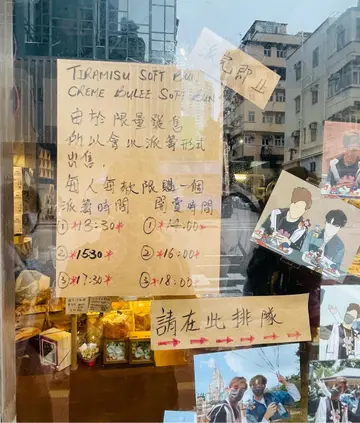 完即止
TIRAMISU SOFT BUN
CREME BULEE SOFT BUN
由於限量發售
所以會以派籌形式
出售.
每人每款限購一個
派籌時間 開賣時間
① *13:30* ① *14:00*
② *1530* ② *16:00*
③ *17:30* ③ *18:00*
請在此排隊